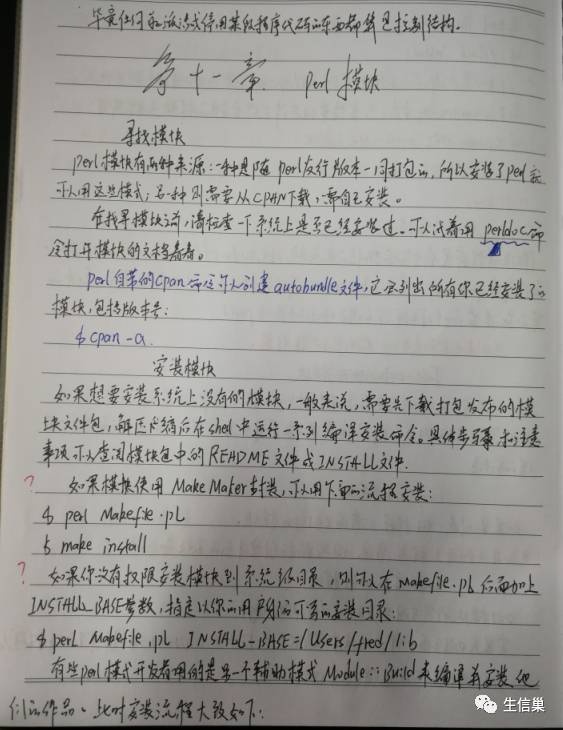 毕竟任何可以激活或停用某段程序代码的东西都算是控制结构。
第十一章 perl 模块
寻找模块
perl模块有两种来源:一种是随perl发行版本一同打包的,所以安装了perl就
可以用这些模式;另一种则需要从CPAN下载,需自己安装。
在找寻模块之前,请检查一下系统上是否已经安装过。可以试着用perldoc命
令打开模块的文档看看。
perl自带的cpan命令可以创建autobundle文件,它会列出所有你已经安装了的
模块,包括版本号:
$ cpan -a
安装模块
如果想要安装系统上没有的模块,一般来说,需要先下载打包发布的模
块文件包,解压缩后在shell中运行一系列编译安装命令。具体步骤和注意
事项可以查阅模块包中的README文件或INSTALL文件.
? 如果模块使用MakeMaker封装,可以用下面的流程安装:
$ perl Makefile.pL
$ make install
? 如果你没有权限安装模块到系统级目录,则可以在Makefile.pL后面加上
INSTALL_BASE参数,指定以你的用户身份可写的安装目录:
$ perl Makefile.pL INSTALL-BASE=/Users/fred/lib
有些perl模式开发者用的是另一个辅助模式Module::Build来编译并安装他
们的作品。此时安装流程大致如下:
生信巢